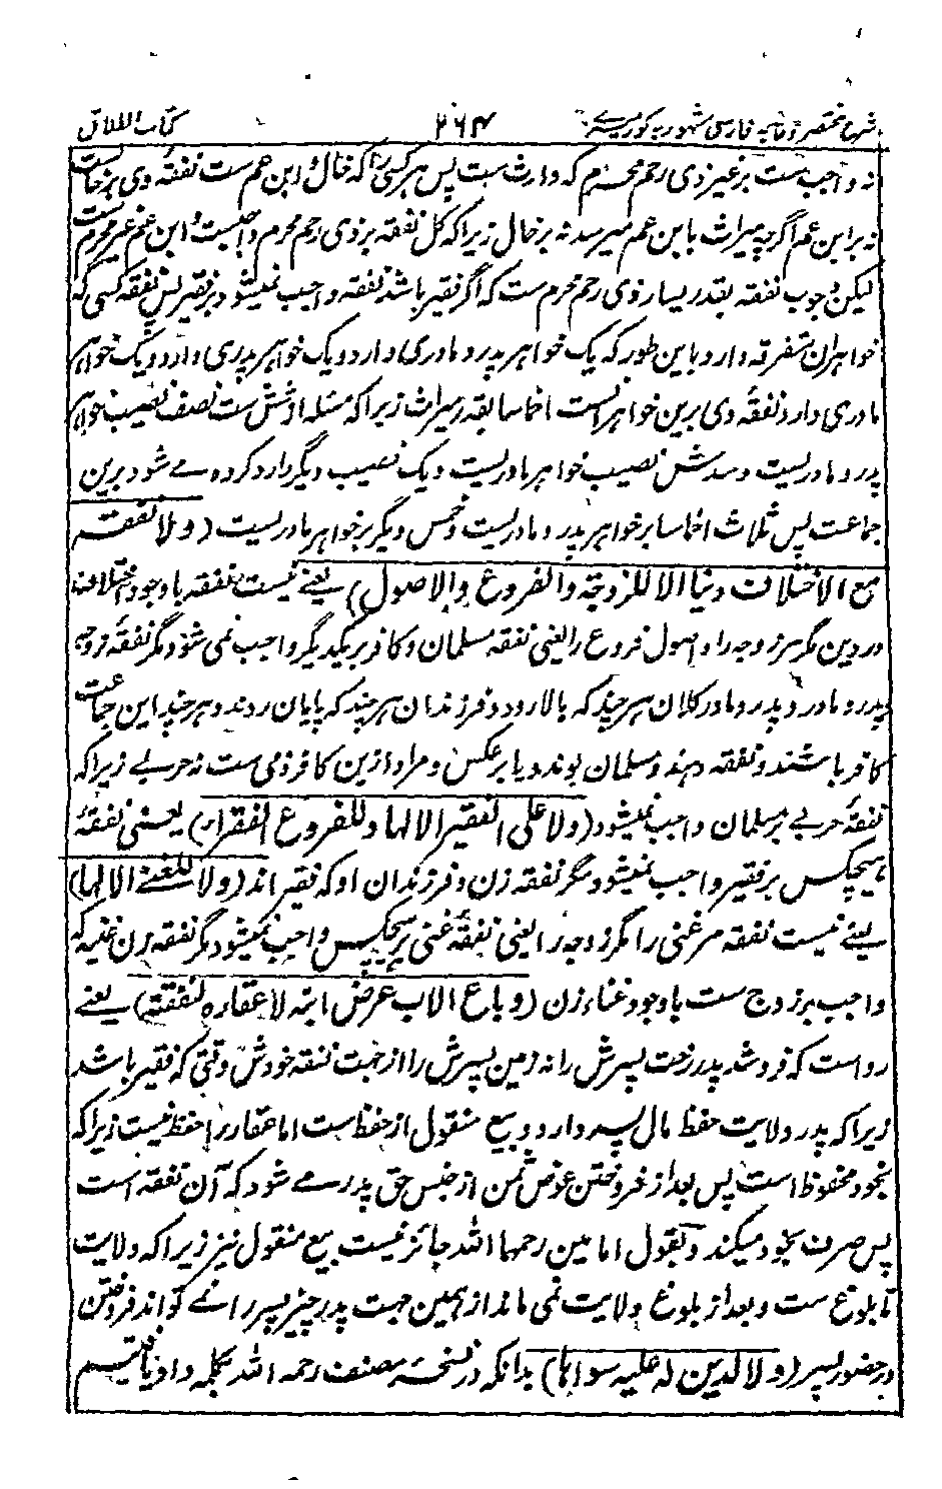 شرح مختصر وقایه فارسی مشهور به کورمیری ۲۶۴ کتاب الطلاق
نه واجب ست بر غیر ذی رحم محرم که وارث ست پس هر کسی را که خال و ابن عم ست نفقه وی بر خالست
نه بر ابن عم اگرچه میراث بابن عم میرسد نه بر خال زیرا که کل نفقه بر ذی رحم محرم واجبست و ابن عم غیر محرم ست
لیکن وجوب نفقه بقدر یسار ذی رحم محرم ست که اگر فقیر باشد نفقه واجب نمیشود بر فقیر پس نفقه کسی که
خواهران متفرقه دارد باین طور که یک خواهر پدر و مادری دارد و یک خواهر پدری دارد و یک خواهر
مادری دارد نفقهٔ وی برین خواهرانست اخماسا بقدر میراث زیرا که مسئله او شش ست نصف نصیب خواهر
پدر و مادریست و سدس نصیب خواهر مادریست و یک نصیب دیگر رد کرده مے شود برین
جماعت پس ثلاث اخماسا بر خواهر پدر و مادریست و خمس دیگر بر خواهر مادریست (ولا نفقة
مع الاختلاف دینا الا للزوجة والفروع والاصول) یعنے نیست نفقه باوجود اختلاف
در دین مگر مر زوجه را و اصول فروع را یعنی نفقه مسلمان و کافر بر یکدیگر واجب نمی شود مگر نفقهٔ زوجه
پدر و مادر و پدر و مادر کلان هر چند که بالا رود و فرزندان هر چند که پایان روند و هر چند این جماعت
کافر باشند و نفقه دهنده مسلمان بوند و یا بر عکس و مراد ازین کافر ذمی ست نه حربے زیرا که
نفقهٔ حربے بر مسلمان واجب نمیشود (ولا علی الفقیر الا لها وللفروع الفقراء) یعنی نفقهٔ
هیچکس بر فقیر واجب نمیشود مگر نفقه زن و فرزندان او که فقیر اند (ولا للغنے الا لها)
یعنے نیست نفقه مر غنی را مگر زوجه را یعنی نفقهٔ غنی بر هیچکس واجب نمیشود مگر نفقه زن غنیه که
واجب بر زوج ست باوجود غناء زن (وباع الاب عرض ابنه لا عقاره لنفقته) یعنے
رواست که فروشد پدر رخت پسرش را نه زمین پسرش را از جهت نفقه خودش وقتی که فقیر باشد
زیرا که پدر ولایت حفظ مال پسر دارد و بیع منقول از حفظ ست اما عقار را حفظ نیست زیرا که
بخود محفوظ است پس بعد از فروختن عوض ثمن از جنس حق پدر مے شود که آن نفقه است
پس صرف بخود میکند و بقول امامین رحمهما الله جائز نیست بیع منقول نیز زیرا که ولایت
تا بلوغ ست و بعد از بلوغ ولایت نمی ماند از همین جهت پدر چیز پسر را نمے تواند فروختن
در حضور پسر (ولا لدین له علیه سواها) بدانکه در نسخهٔ مصنف رحمه الله بکلمه واو یافتیم